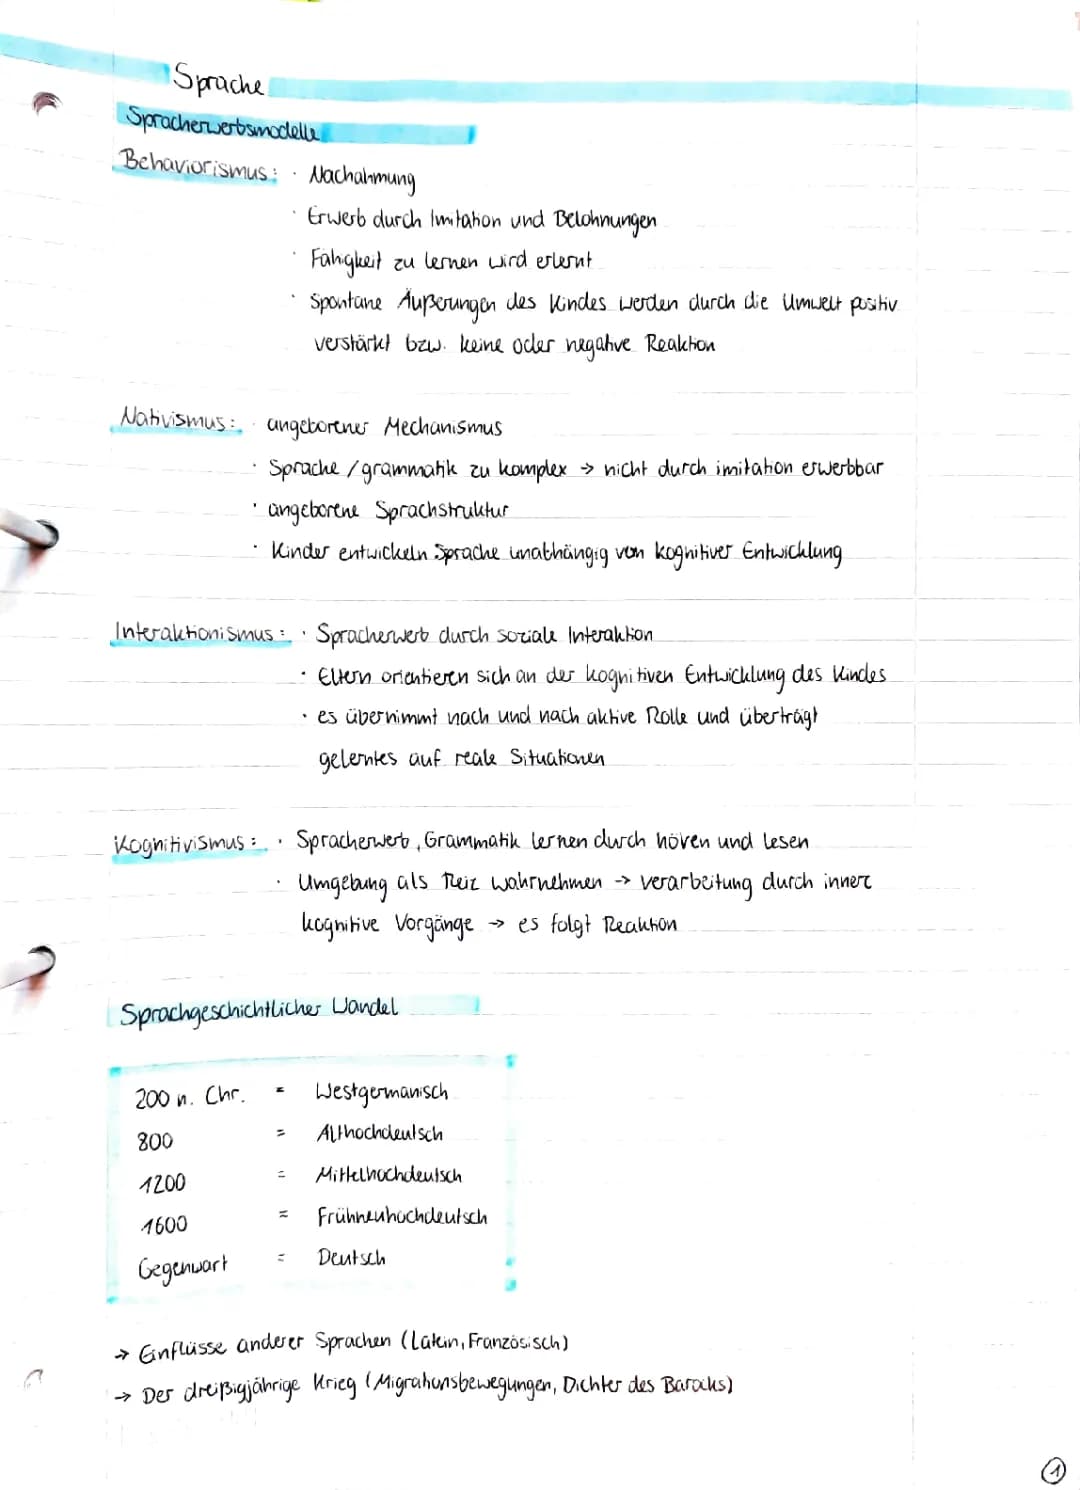 Sprache
Spracherwerbsmodelle
Behaviorismus: · Nachahmung
· Erwerb durch Imitation und Belohnungen
· Fähigkeit zu lernen wird erlernt
· Spontane Äußerungen des Kindes werden durch die Umwelt positiv
verstärkt bzw. keine oder negative Reaktion
Nativismus: · angeborener Mechanismus
· Sprache/grammatik zu komplex → nicht durch imitation erwerbbar
· angeborene Sprachstruktur
· Kinder entwickeln Sprache unabhängig von kognitiver Entwicklung
Interaktionismus: · Spracherwerb durch soziale Interaktion
· Eltern orientieren sich an der kognitiven Entwicklung des Kindes
· es übernimmt nach und nach aktive Rolle und überträgt
gelerntes auf reale Situationen
Kognitivismus: · Spracherwerb, Grammatik lernen durch hören und lesen
· Umgebung als Reiz wahrnehmen → verarbeitung durch innere
kognitive Vorgänge → es folgt Reaktion
Sprachgeschichtlicher Wandel
200 n. Chr. = Westgermanisch
800 = Althochdeutsch
1200 = Mittelhochdeutsch
1600 = Frühneuhochdeutsch
Gegenwart = Deutsch
→ Einflüsse anderer Sprachen (Latein, Französisch)
→ Der dreißigjährige Krieg (Migrationsbewegungen, Dichter des Barocks)
1